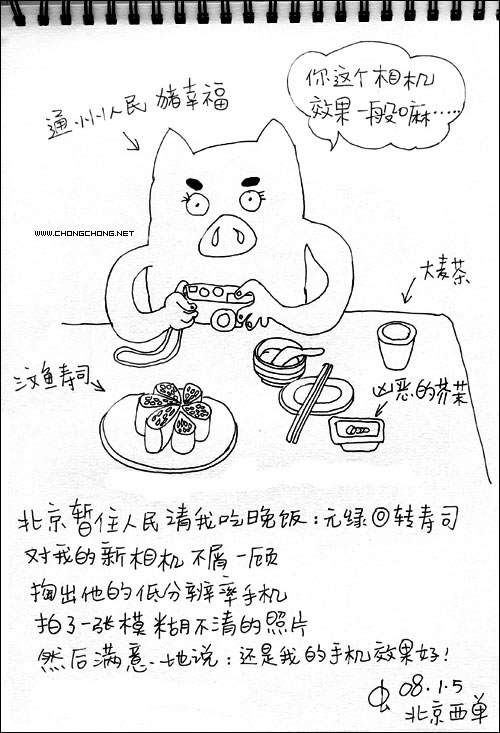 通州人民 猪幸福
你这个相机
效果一般嘛……
WWW.CHONGCHONG.NET
大麦茶
汶鱼寿司
凶恶的芥菜
北京暂住人民请我吃晚饭：元绿◎转寿司
对我的新相机不屑一顾
掏出他的低分辨率手机
拍了一张模糊不清的照片
然后满意地说：还是我的手机效果好！
虫 08.1.5
北京西单